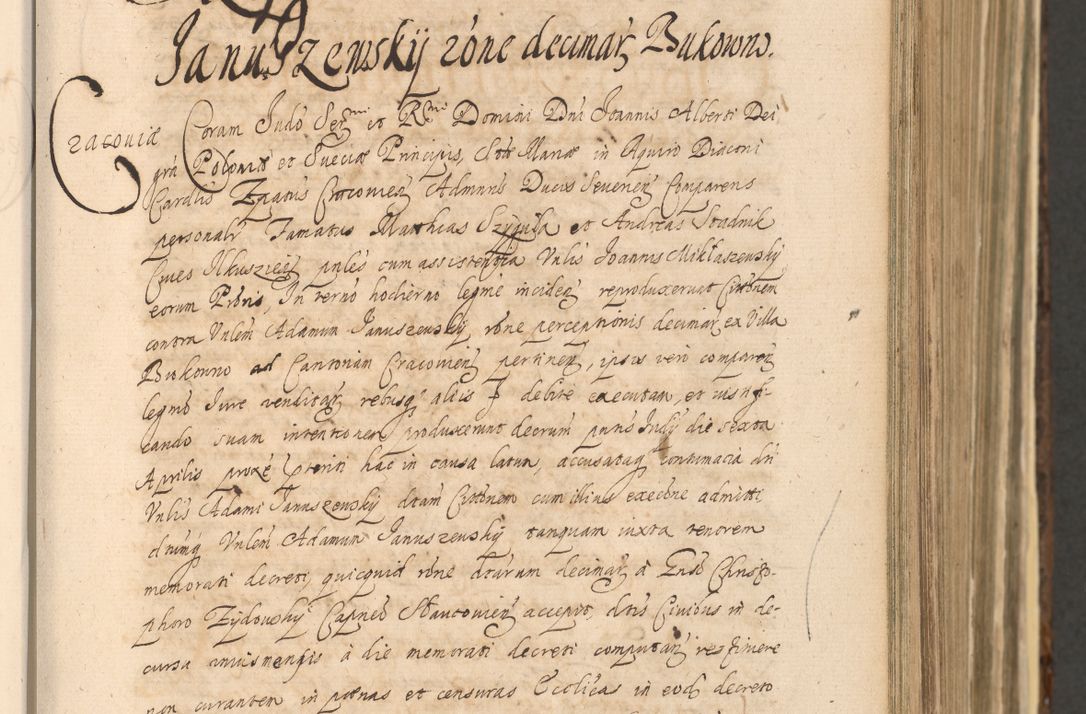 Januszewskÿ rõne decimarz Bukowno.
Cracoviæ Coram Judõ Serᵐⁱ et Rᵐⁱ Domini Dni Joannis Alberti Dei
grã Poloniæ et Sueciæ Principis, Sctæ Mariæ in Aquiro Diaconi
Cardlis Epatus Cracovien Admnris Ducis Severien Comparens
personalr Famatus Matthias Szyguła et Andreas Stadnik
Cives Ilkuszien pntes cum assistentia Vnlis Joannis Mikłaszewskÿ
eorum Prõris, In termo hodierno legme inciden reproduxerunt Cittõnem
contra Vnlem Adamum Januszewskÿ rõne perceptionis decimar ex Villa
Bukowno ad Cantoriam Cracovien pertinen, ipsius vero comparen
legmo Jure venditar rebusq alijs debite executam, et iustifi-
cando suam intentionem produxerunt decrum pntis Judÿ die sexta
Aprilis proxe pteriti hac in causa latum, accusataq contumacia dti
Vnlis Adami Januszewskÿ dtam Cittõnem cum illius execõne admitti,
dtumq Vnlem Adamum Januszewskÿ tanquam iuxta tenorem
memorati decreti, quicquid rõne dtarum decimar à Christo-
phoro Zydowskÿ accepit, dtis Civibus in de-
cursu à die memorati decreti computan restituere
non curantem in pænas et censuras Ecclicas in eod decreto